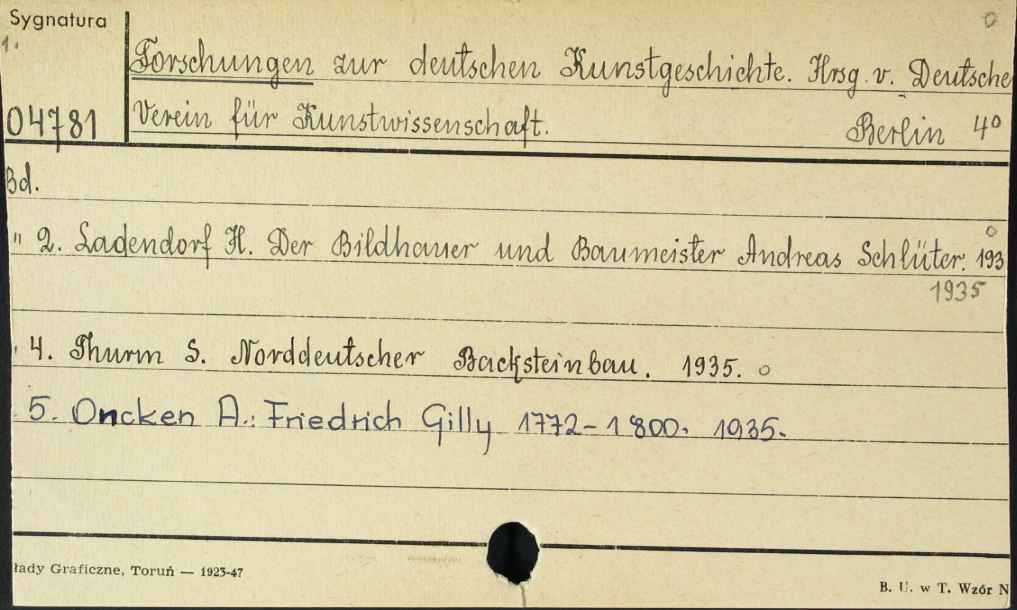 Sygnatura
1.
Forschungen zur deutschen Kunstgeschichte. Hrsg. v. Deutsche
04781 Verein für Kunstwissenschaft. Berlin 4º
Bd.
" 2. Ladendorf H. Der Bildhauer und Baumeister Andreas Schlüter. 193
1935
4. Thurm S. Norddeutscher Backsteinbau. 1935. o
5. Oncken A.: Friedrich Gilly 1772-1800. 1935.
łady Graficzne, Toruń — 1923-47
B. U. w T. Wzór N